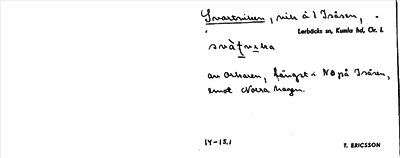 Svartviken, vik å 1 Isåsen,
Lerbäcks sn, Kumla hd, Ör. l.
av Åsaren, längst i NO på Isåsen,
emot Norra hagen.
14-15.1 T. ERICSSON